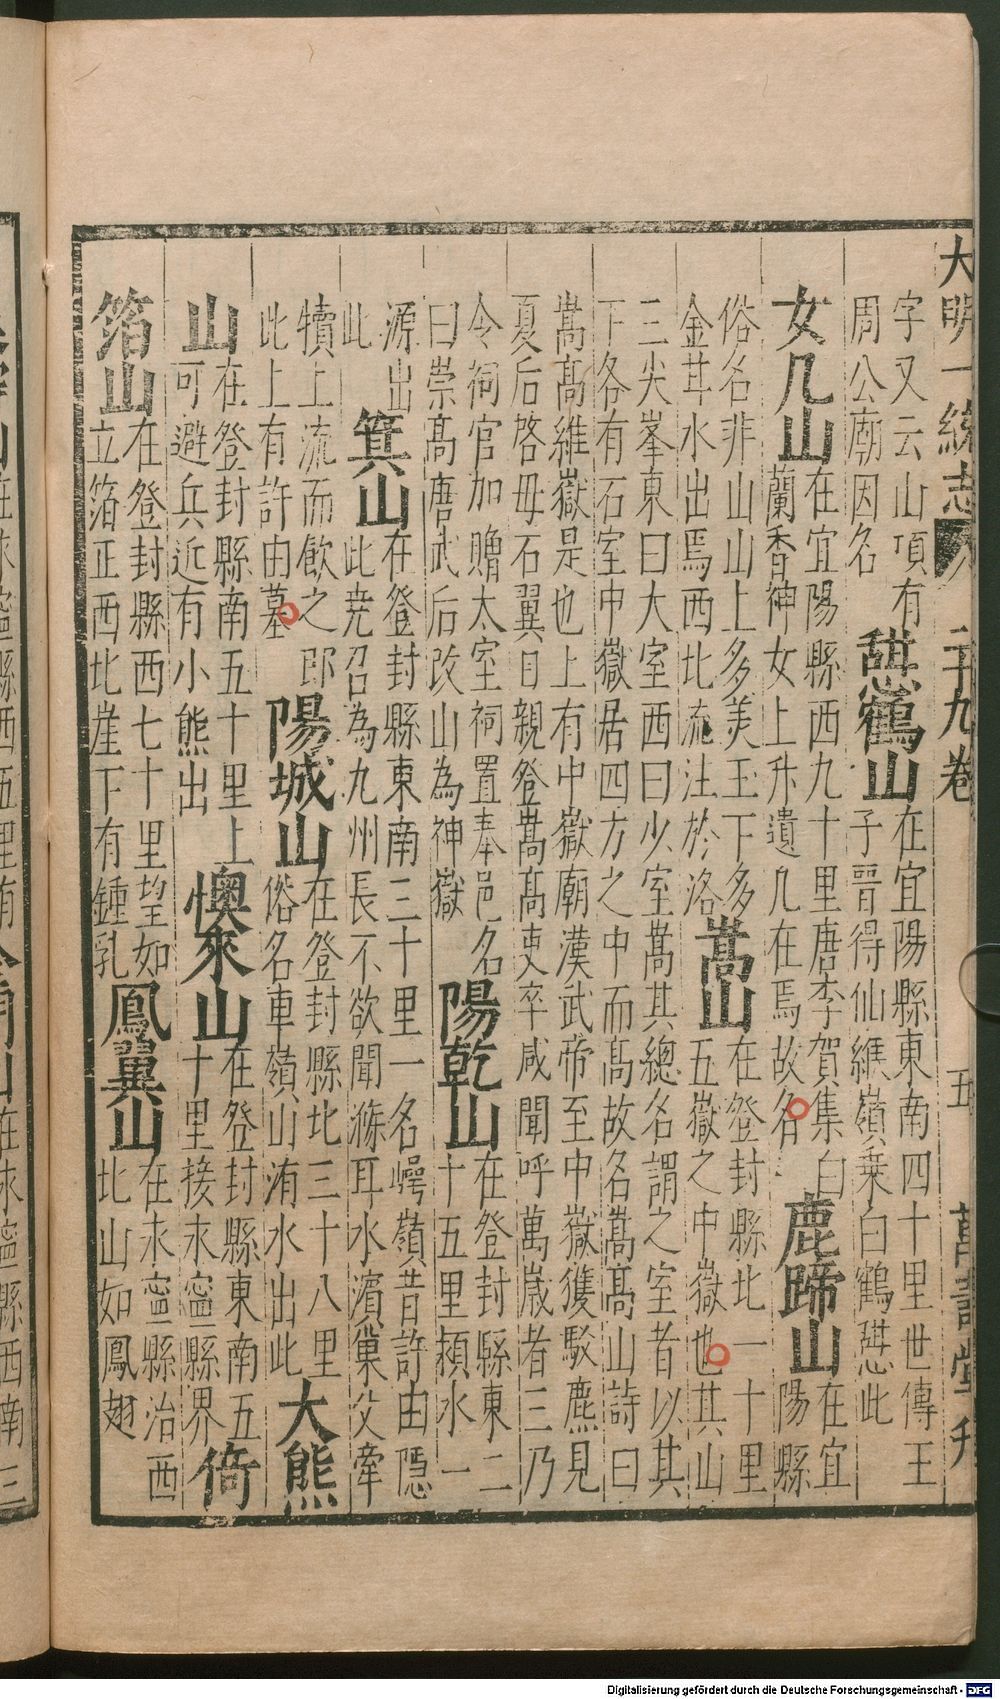 大明一統志 二十九卷 五 萬壽堂刋
字又云山頂有
周公廟因名
憇鶴山
在宜陽縣東南四十里世傳王
子晉得仙緱嶺乗白鶴憇此
女几山
在宜陽縣西九十里唐李賀集曰
蘭香神女上升遺几在焉故名
鹿蹄山
在宜
陽縣
俗名非山山上多美玉下多
金其水出焉西北流注於洛
嵩山
在登封縣北一十里
五嶽之中嶽也其山
三尖峯東曰大室西曰少室嵩其總名謂之室者以其
下各有石室中嶽居四方之中而髙故名嵩髙山詩曰
嵩髙維嶽是也上有中嶽廟漢武帝至中嶽獲駁鹿見
夏后啓母石翼日親登嵩髙吏卒咸聞呼萬歲者三乃
令祠官加贈太室祠置奉邑名
曰崇髙唐武后改山為神嶽
陽乾山
在登封縣東二
十五里潁水一
源出
此
箕山
在登封縣東南三十里一名嶺昔許由隱
此尭召為九州長不欲聞滌耳水濵巢父牽
犢上流而飲之即
此上有許由墓
陽城山
在登封縣北三十八里
俗名車嶺山洧水出此
大熊
山
在登封縣南五十里上
可避兵近有小熊出
懊來山
在登封縣東南五
十里接永寧縣界
倚
箔山
在登封縣西七十里望如
立箔正西北崖下有鍾乳
鳳翼山
在永寧縣治西
北山如鳳翅
山在永寧縣西五里
在永寧縣西南三
Digitalisierung gefördert durch die Deutsche Forschungsgemeinschaft - DFG